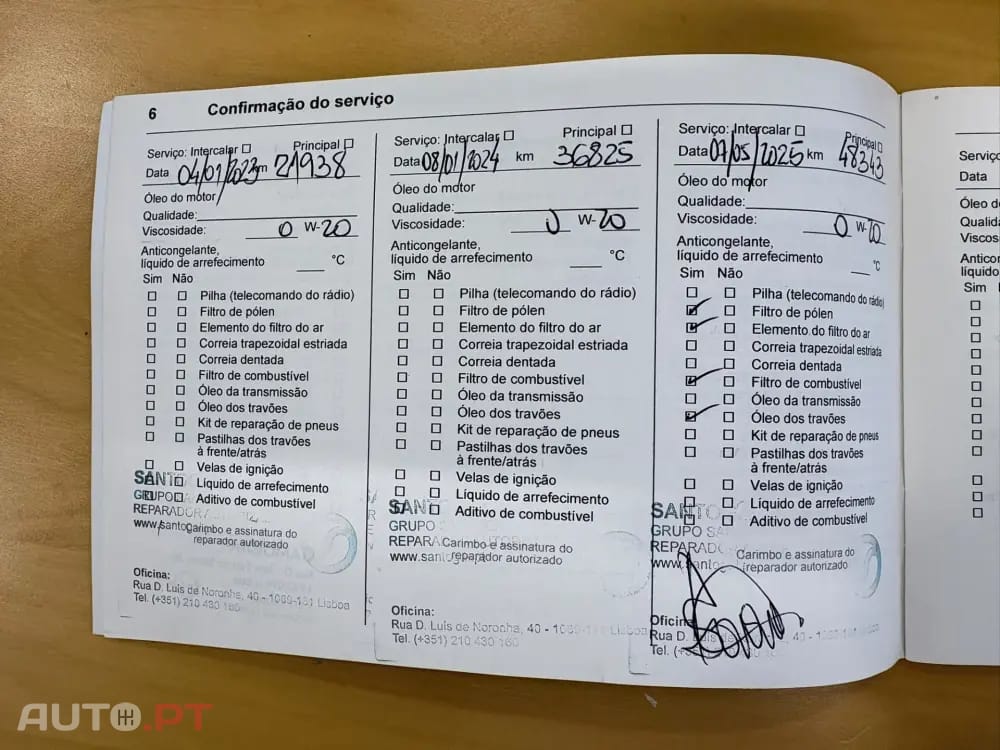 6 Confirmação do serviço
Serviço: Intercalar Principal
Data 04/01/2023 km 21938
Óleo do motor
Qualidade:
Viscosidade: 0 W-20
Anticongelante,
líquido de arrefecimento °C
Sim Não
Pilha (telecomando do rádio)
Filtro de pólen
Elemento do filtro do ar
Correia trapezoidal estriada
Correia dentada
Filtro de combustível
Óleo da transmissão
Óleo dos travões
Kit de reparação de pneus
Pastilhas dos travões
à frente/atrás
Velas de ignição
Líquido de arrefecimento
Aditivo de combustível
GRUPO
REPARADOR
Carimbo e assinatura do
reparador autorizado
Oficina:
Rua D. Luis de Noronha, 40 - 1069-161 Lisboa
Tel. (+351) 210 430 160
Serviço: Intercalar Principal
Data 08/01/2024 km 36825
Óleo do motor
Qualidade:
Viscosidade: 0 W-20
Anticongelante,
líquido de arrefecimento °C
Sim Não
Pilha (telecomando do rádio)
Filtro de pólen
Elemento do filtro do ar
Correia trapezoidal estriada
Correia dentada
Filtro de combustível
Óleo da transmissão
Óleo dos travões
Kit de reparação de pneus
Pastilhas dos travões
à frente/atrás
Velas de ignição
Líquido de arrefecimento
Aditivo de combustível
GRUPO
Carimbo e assinatura do
reparador autorizado
Oficina:
Rua D. Luis de Noronha, 40 - 1069-161 Lisboa
Tel. (+351) 210 430 160
Serviço: Intercalar Principal
Data 07/05/2025 km 48343
Óleo do motor
Qualidade:
Viscosidade: 0 W-20
Anticongelante,
líquido de arrefecimento °C
Sim Não
Pilha (telecomando do rádio)
Filtro de pólen
Elemento do filtro do ar
Correia trapezoidal estriada
Correia dentada
Filtro de combustível
Óleo da transmissão
Óleo dos travões
Kit de reparação de pneus
Pastilhas dos travões
à frente/atrás
Velas de ignição
Líquido de arrefecimento
Aditivo de combustível
GRUPO
Carimbo e assinatura do
reparador autorizado
Rua D. Luis de
Tel.
Serviç
Data
Óleo d
Qualida
Viscos
Antico
líquido
Sim
AUTO.PT